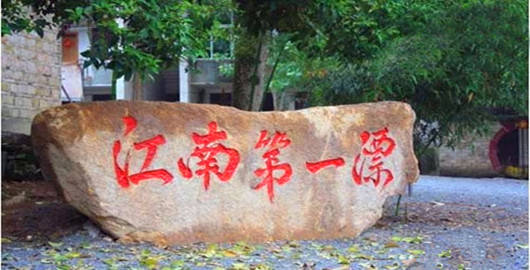 江南第一漂